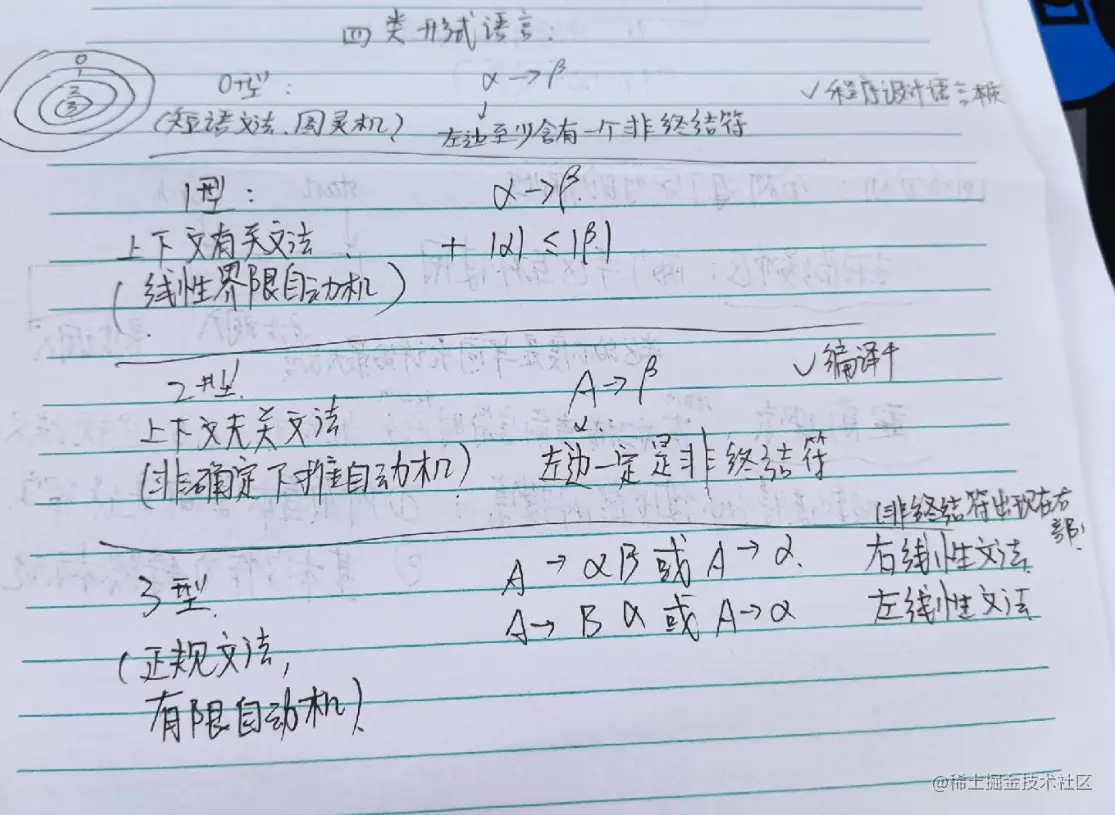 四类形式语言:
0
1
2
3
0型: α→β
✓程序设计语言
(短语文法、图灵机) ↓左边至少含有一个非终结符
1型: α→β
上下文有关文法 + |α| ≤ |β|
(线性界限自动机)
2型. A→β ✓编译中
上下文无关文法
(非确定下推自动机) 左边一定是非终结符
(非终结符出现在右部)
3型. A→αB或A→α. 右线性文法
A→Bα或A→α 左线性文法
(正规文法,
有限自动机).
@稀土掘金技术社区